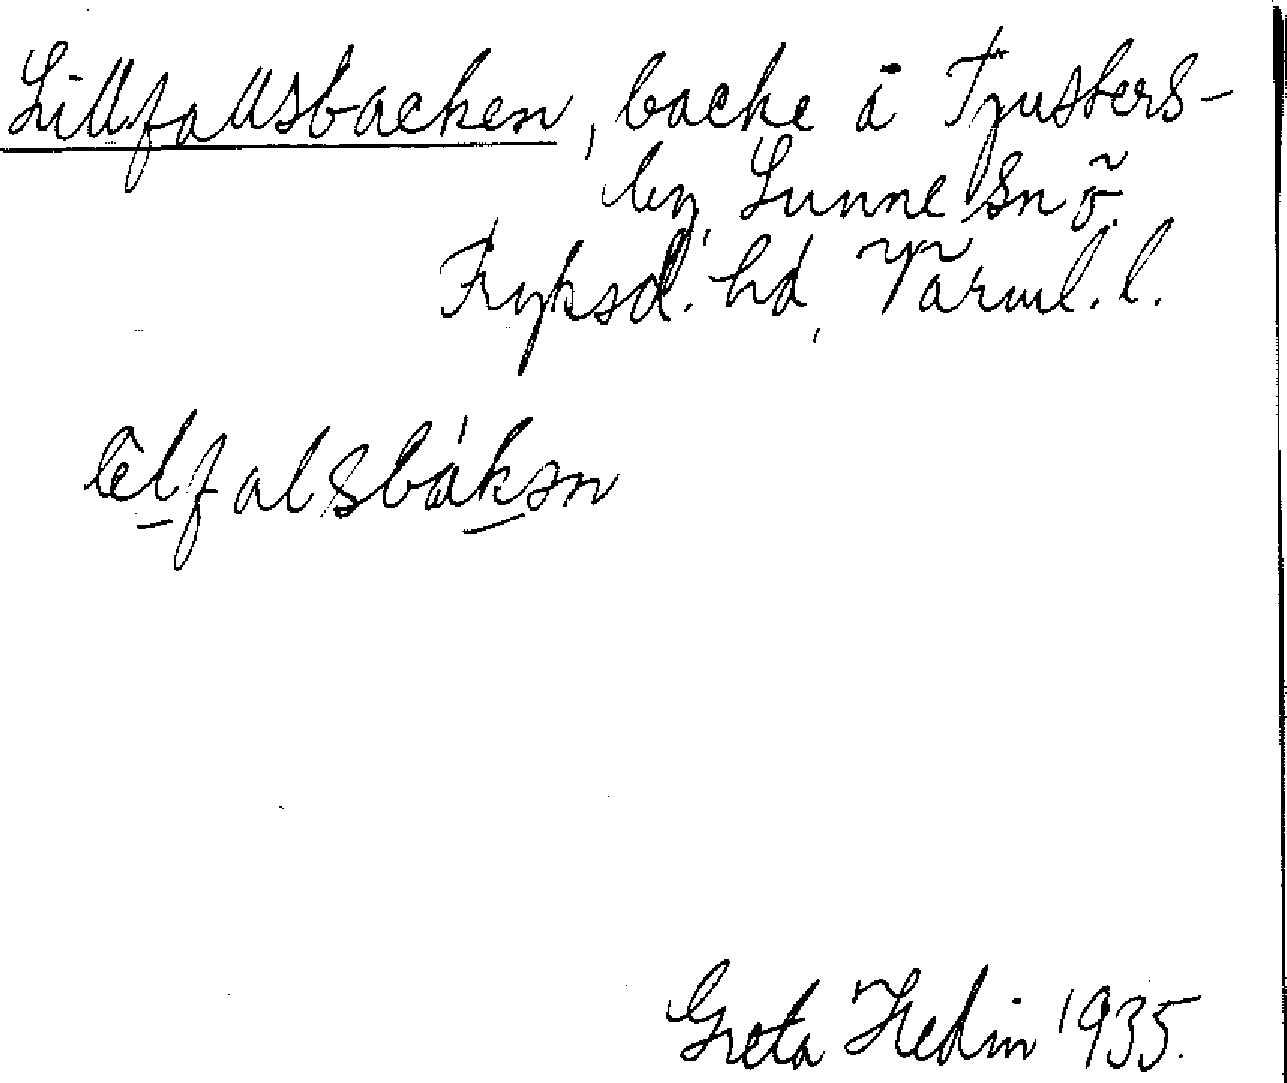 Lillfallsbacken, backe å Tjusters-
by, Sunne sn ö.
Fryksd. hd, Värml. l.
lelfalsbákən
Greta Hedin 1935.